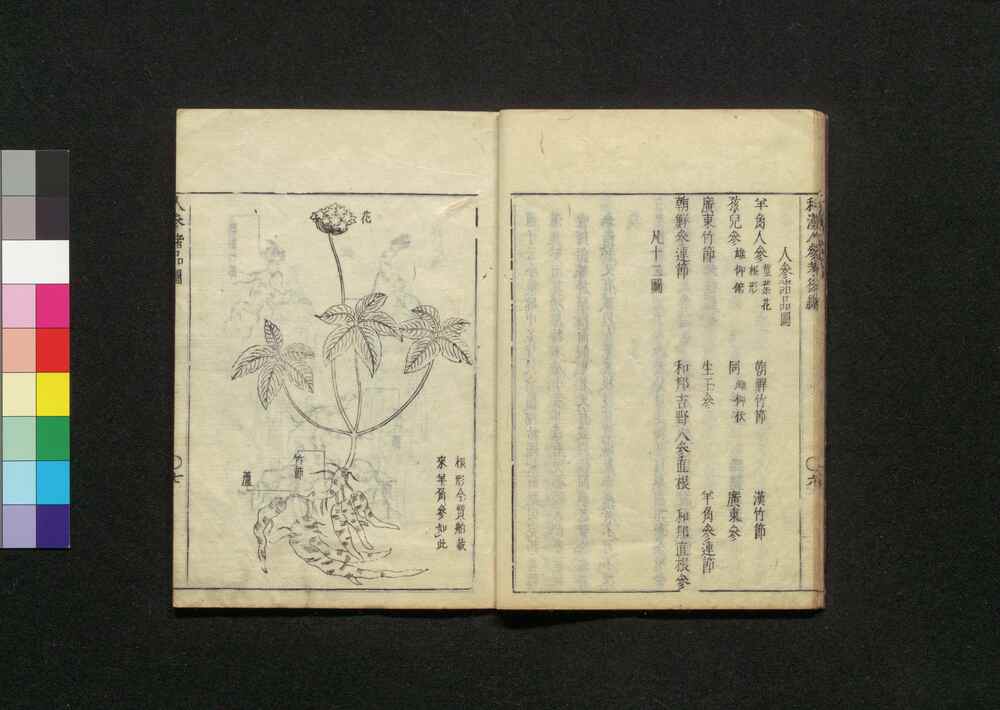 和漢人參考後編
人參諸品圖
羊角人參 莖葉花 根形
朝鮮竹節
漢竹節
孩兒參 雄仰俯
同 雌仰伏
廣東參
廣東竹節
生干參
羊角參連節
朝鮮參連節
和邦吉野人參直根
和邦直根參
凡十三圖
六
花
竹節
蘆
根形今賈舶載
來羊角參如此
人參諸品圖
七